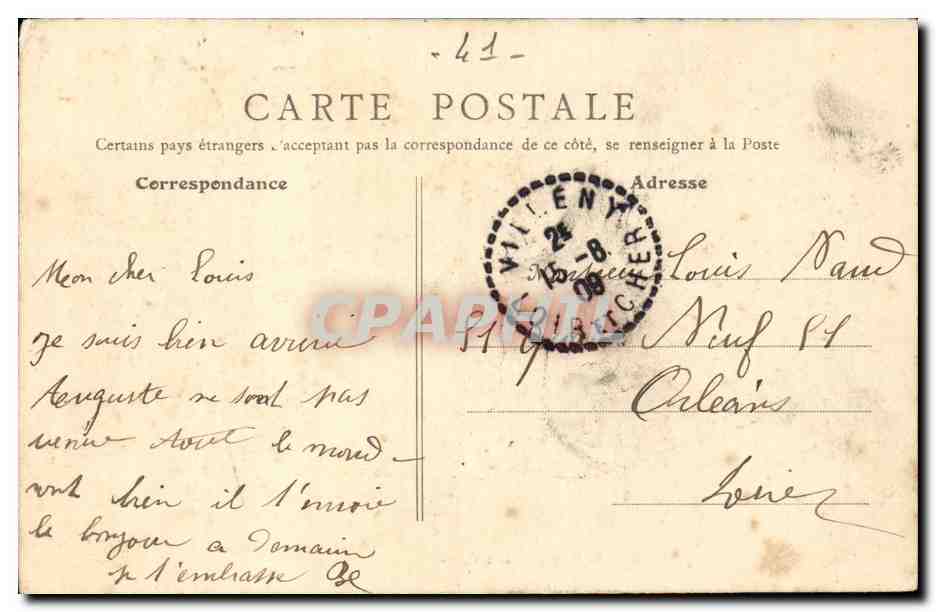 - 41 -
CARTE POSTALE
Certains pays étrangers n'acceptant pas la correspondance de ce côté, se renseigner à la Poste
Correspondance
Adresse
VILLENY
2E
15 -8
09
LOIR ET CHER
Mon cher Louis
Je suis bien arrivé
Auguste ne sont pas
venue tout le mond
vont bien il t'envoie
le bonjour a demain
je t'embrasse
Monsieur Louis Naud
51 Neuf 51
Orléans
Loiret
CPAPHIL